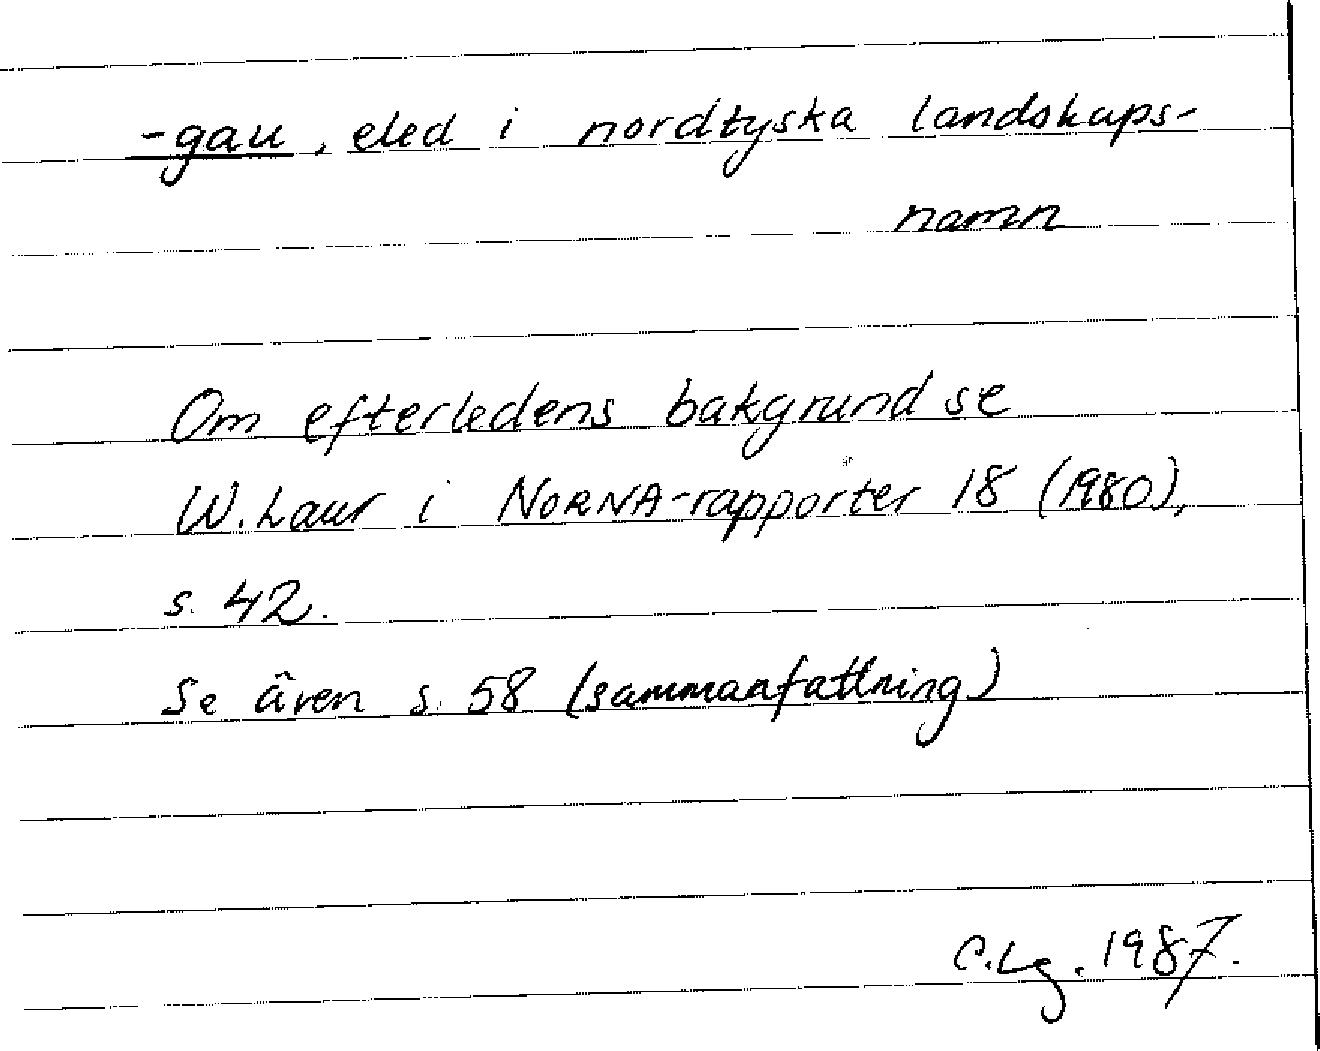 -gau, eled i nordtyska landskaps-
namn
Om efterledens bakgrund se
W. Laur i NORNA-rapporter 18 (1980),
s. 42.
Se även s. 58 (sammanfattning)
C.Lg. 1987.